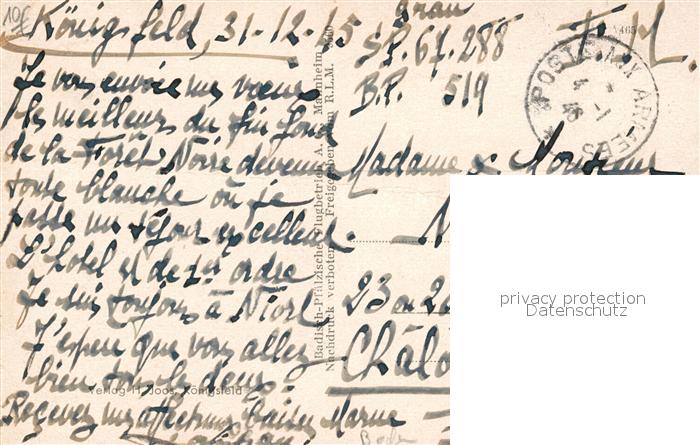 Königsfeld, 31-12-45
Je vous envoie mes vœux
les meilleurs du fin fond
de la Forêt Noire devenue
toute blanche où je
passe un séjour excellent.
L'hotel est de 1er ordre
Je suis toujours à
J'espère que vous allez
bien tous les deux.
Recevez mes affectueux baisers
Verlag H. Joos, Königsfeld
Badisch-Pfälzische Flugbetrieb A. G. Mannheim
Nachdruck verboten Freigegeben R.L.M.
S.P. 67.288
B.P. 519
F.M.
POSTE AUX ARMEES
Madame & Monsieur
23
Châlo
Marne
privacy protection
Datenschutz